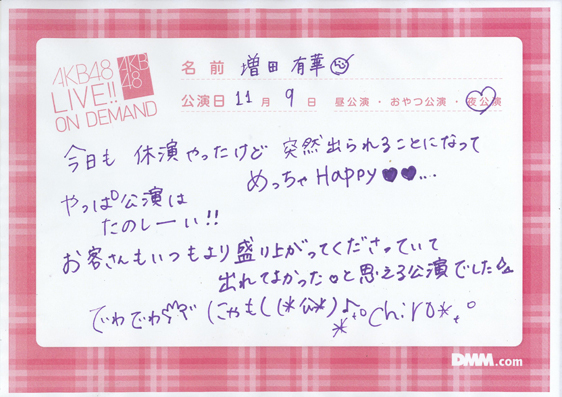 AKB48
LIVE!!
ON DEMAND
AKB
48
名前 増田 有華
公演日 11月 9日 昼公演・おやつ公演・夜公演
今日も 休演やったけど 突然出られることになって
めっちゃHappy♥♥...
やっぱ公演は
たのしーい!!
お客さんもいつもより盛り上がってくださっていて
出れてよかった。と思える公演でした
でわでわ
chiro*
DMM.com